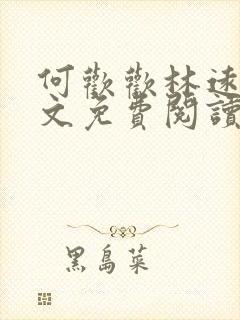 何歡歡林遠
文免費閱讀
黑島菜